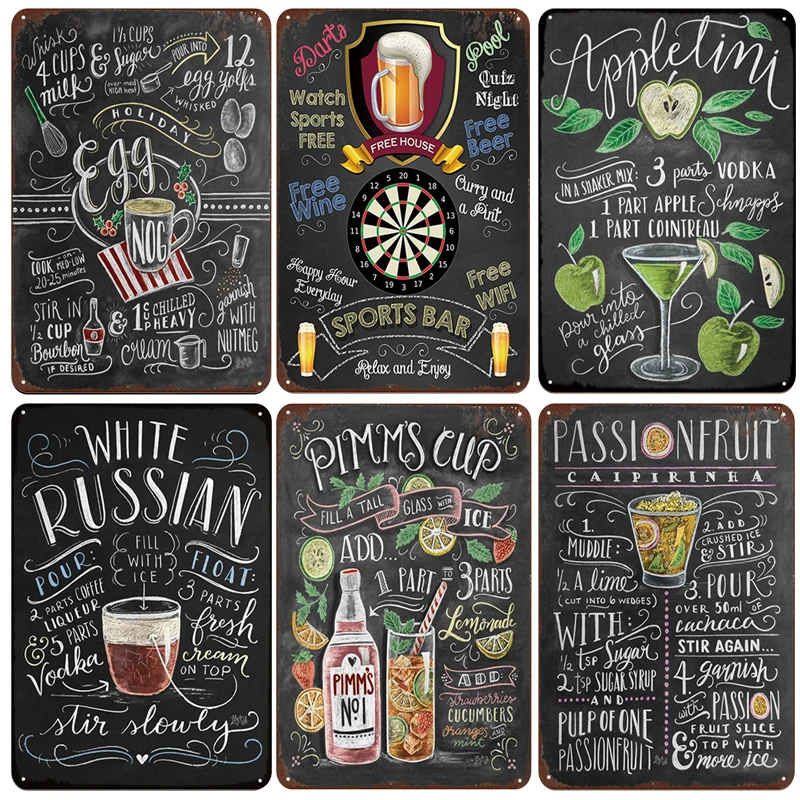 Whisk
4 CUPS
milk
1½ CUPS
& Sugar
(over med
HIGH heat)
POUR INTO
12
egg yolks
WHISKED
HOLIDAY
Egg
NOG
COOK on MED-LOW
20-25 minutes
STIR IN
½ CUP
Bourbon
IF DESIRED
& 1 C CHILLED
1 P HEAVY
cream
garnish
WITH
NUTMEG
Darts
Pool
Quiz
Night
Watch
Sports
FREE
Free
Beer
FREE HOUSE
Free
Wine
Curry and
a Pint
20 1 18 4 13 6 10 15 2 17 3 19 7 16 8 11 14 9 12 5
Happy Hour
Everyday
Free
WIFI
SPORTS BAR
Relax and Enjoy
Appletini
IN A SHAKER MIX: 3 parts VODKA
1 PART APPLE Schnapps
1 PART COINTREAU
pour into
a chilled
glass
WHITE
RUSSIAN
POUR:
FILL
WITH
ICE
FLOAT:
2 PARTS COFFEE
LIQUEUR
& 5 PARTS
Vodka
3 PARTS
fresh
cream
ON TOP
stir slowly
PIMM'S CUP
FILL A TALL GLASS WITH ICE
ADD...
1 PART TO 3 PARTS
Lemonade
PIMM'S
No 1
ADD:
strawberries
CUCUMBERS
oranges AND
mint
PASSIONFRUIT
CAIPIRINHA
1.
MUDDLE:
½ a lime
(CUT INTO 6 WEDGES)
WITH:
½ tsp Sugar
2 tsp SUGAR SYRUP
AND
PULP OF ONE
PASSIONFRUIT
2. ADD
CRUSHED ICE
& STIR
3. POUR
OVER 50ml OF
cachaca
STIR AGAIN...
4 garnish
with PASSION
FRUIT SLICE
& TOP WITH
more ice